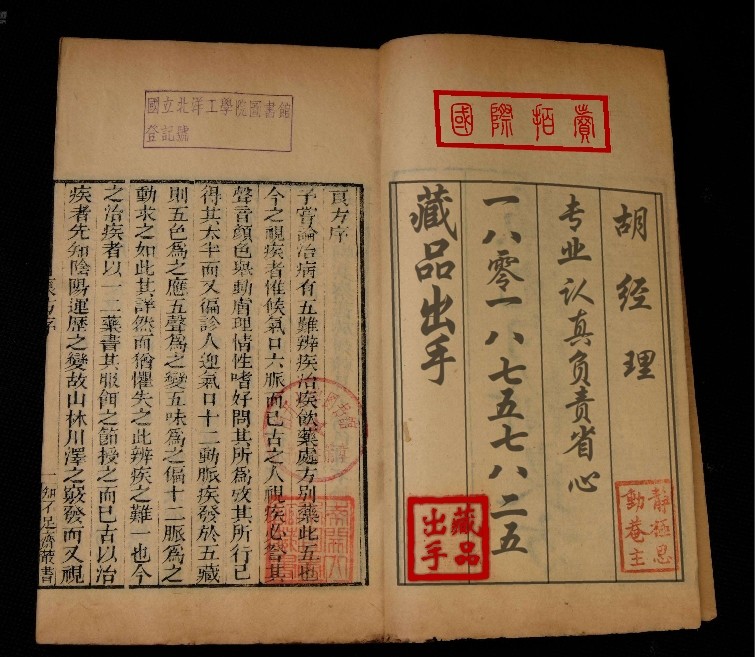 國際拍賣
胡经理
专业认真负责省心
一八零一八七五七八二五
藏品出手
藏品
出手
靜極思
動菴主
國立北洋工學院圖書館
登記號
良方序
予嘗論治病有五難辨疾治疾飲藥處方別藥此五也
今之視疾者惟候氣口六脈而已古之人視疾必詧其
聲音顏色舉動膚理情性嗜好問其所爲攷其所行已
得其太半而又徧診人迎氣口十二動脈疾發於五藏
則五色爲之應五聲爲之變五味爲之偏十二脈爲之
動求之如此其詳然而猶懼失之此辨疾之難一也今
之治疾者以一二藥書其服餌之節授之而已古以治
疾者先知陰陽運歷之變故山林川澤之竅發而又視
良方序
一
知不足齋叢書